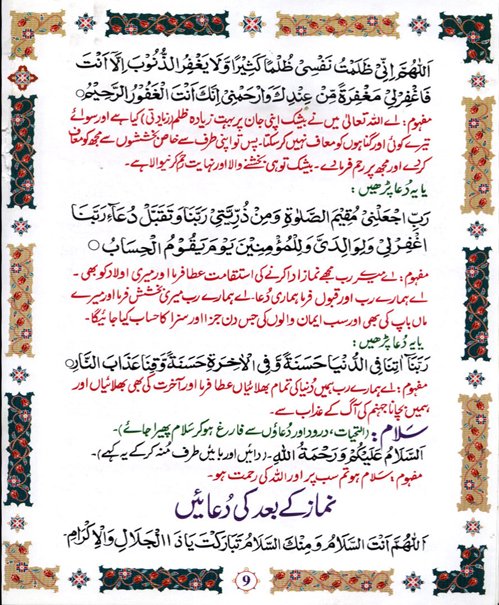 اَللّٰهُمَّ اِنِّیْ ظَلَمْتُ نَفْسِیْ ظُلْمًا كَثِیْرًا وَّلَا یَغْفِرُ الذُّنُوْبَ اِلَّا اَنْتَ
فَاغْفِرْلِیْ مَغْفِرَةً مِّنْ عِنْدِكَ وَارْحَمْنِیْ اِنَّكَ اَنْتَ الْغَفُوْرُ الرَّحِیْمُ○
مفہوم: اے اللہ تعالیٰ میں نے بیشک اپنی جان پر بہت زیادہ ظلم (زیادتی) کیا ہے اور سوائے
تیرے کوئی اور گناہوں کو معاف نہیں کر سکتا۔ پس تو اپنی طرف سے خاص بخششوں سے مجھ کو معاف
کر دے اور مجھ پر رحم فرما دے۔ بیشک تو ہی بخشنے والا اور نہایت رحم کرنیوالا ہے۔
یا یہ دُعا پڑھیں:
رَبِّ اجْعَلْنِیْ مُقِیْمَ الصَّلٰوةِ وَمِنْ ذُرِّیَّتِیْ رَبَّنَا وَتَقَبَّلْ دُعَآءِ رَبَّنَا
اغْفِرْلِیْ وَلِوَالِدَیَّ وَلِلْمُؤْمِنِیْنَ یَوْمَ یَقُوْمُ الْحِسَابُ○
مفہوم: اے میرے رب مجھے نماز ادا کرنے کی استقامت عطا فرما اور میری اولاد کو بھی۔
اے ہمارے رب اور قبول فرما ہماری دُعا۔ اے ہمارے رب میری بخشش فرما اور میرے
ماں باپ کی بھی اور سب ایمان والوں کی جس دن جزا اور سزا کا حساب کیا جائیگا۔
یا یہ دُعا پڑھیں:
رَبَّنَا اٰتِنَا فِی الدُّنْیَا حَسَنَةً وَّفِی الْاٰخِرَةِ حَسَنَةً وَّقِنَا عَذَابَ النَّارِ○
مفہوم: اے ہمارے رب ہمیں دُنیا کی تمام بھلائیاں عطا فرما اور آخرت کی بھی بھلائیاں اور
ہمیں بچانا جہنم کی آگ کے عذاب سے۔
سَلام: (التحیات، درود اور دُعاؤں سے فارغ ہو کر سلام پھیرا جائے)۔
اَلسَّلَامُ عَلَیْكُمْ وَرَحْمَةُ اللّٰهِ۔ (دائیں اور بائیں طرف مُنہ کر کے یہ کہے)۔
مفہوم، سَلام ہو تم سب پر اور اللہ کی رحمت ہو۔
نماز کے بعد کی دُعائیں
اَللّٰهُمَّ اَنْتَ السَّلَامُ وَمِنْكَ السَّلَامُ تَبَارَكْتَ یَاذَا الْجَلَالِ وَالْاِكْرَامِ۔
9